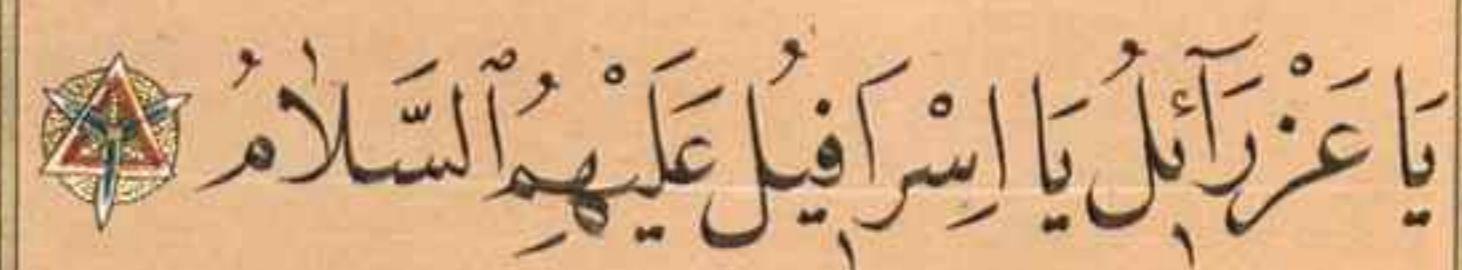 يَا عَزْرَآئِلُ يَا اِسْرَافِيلُ عَلَيْهِمُ ٱلسَّلاٰمُ